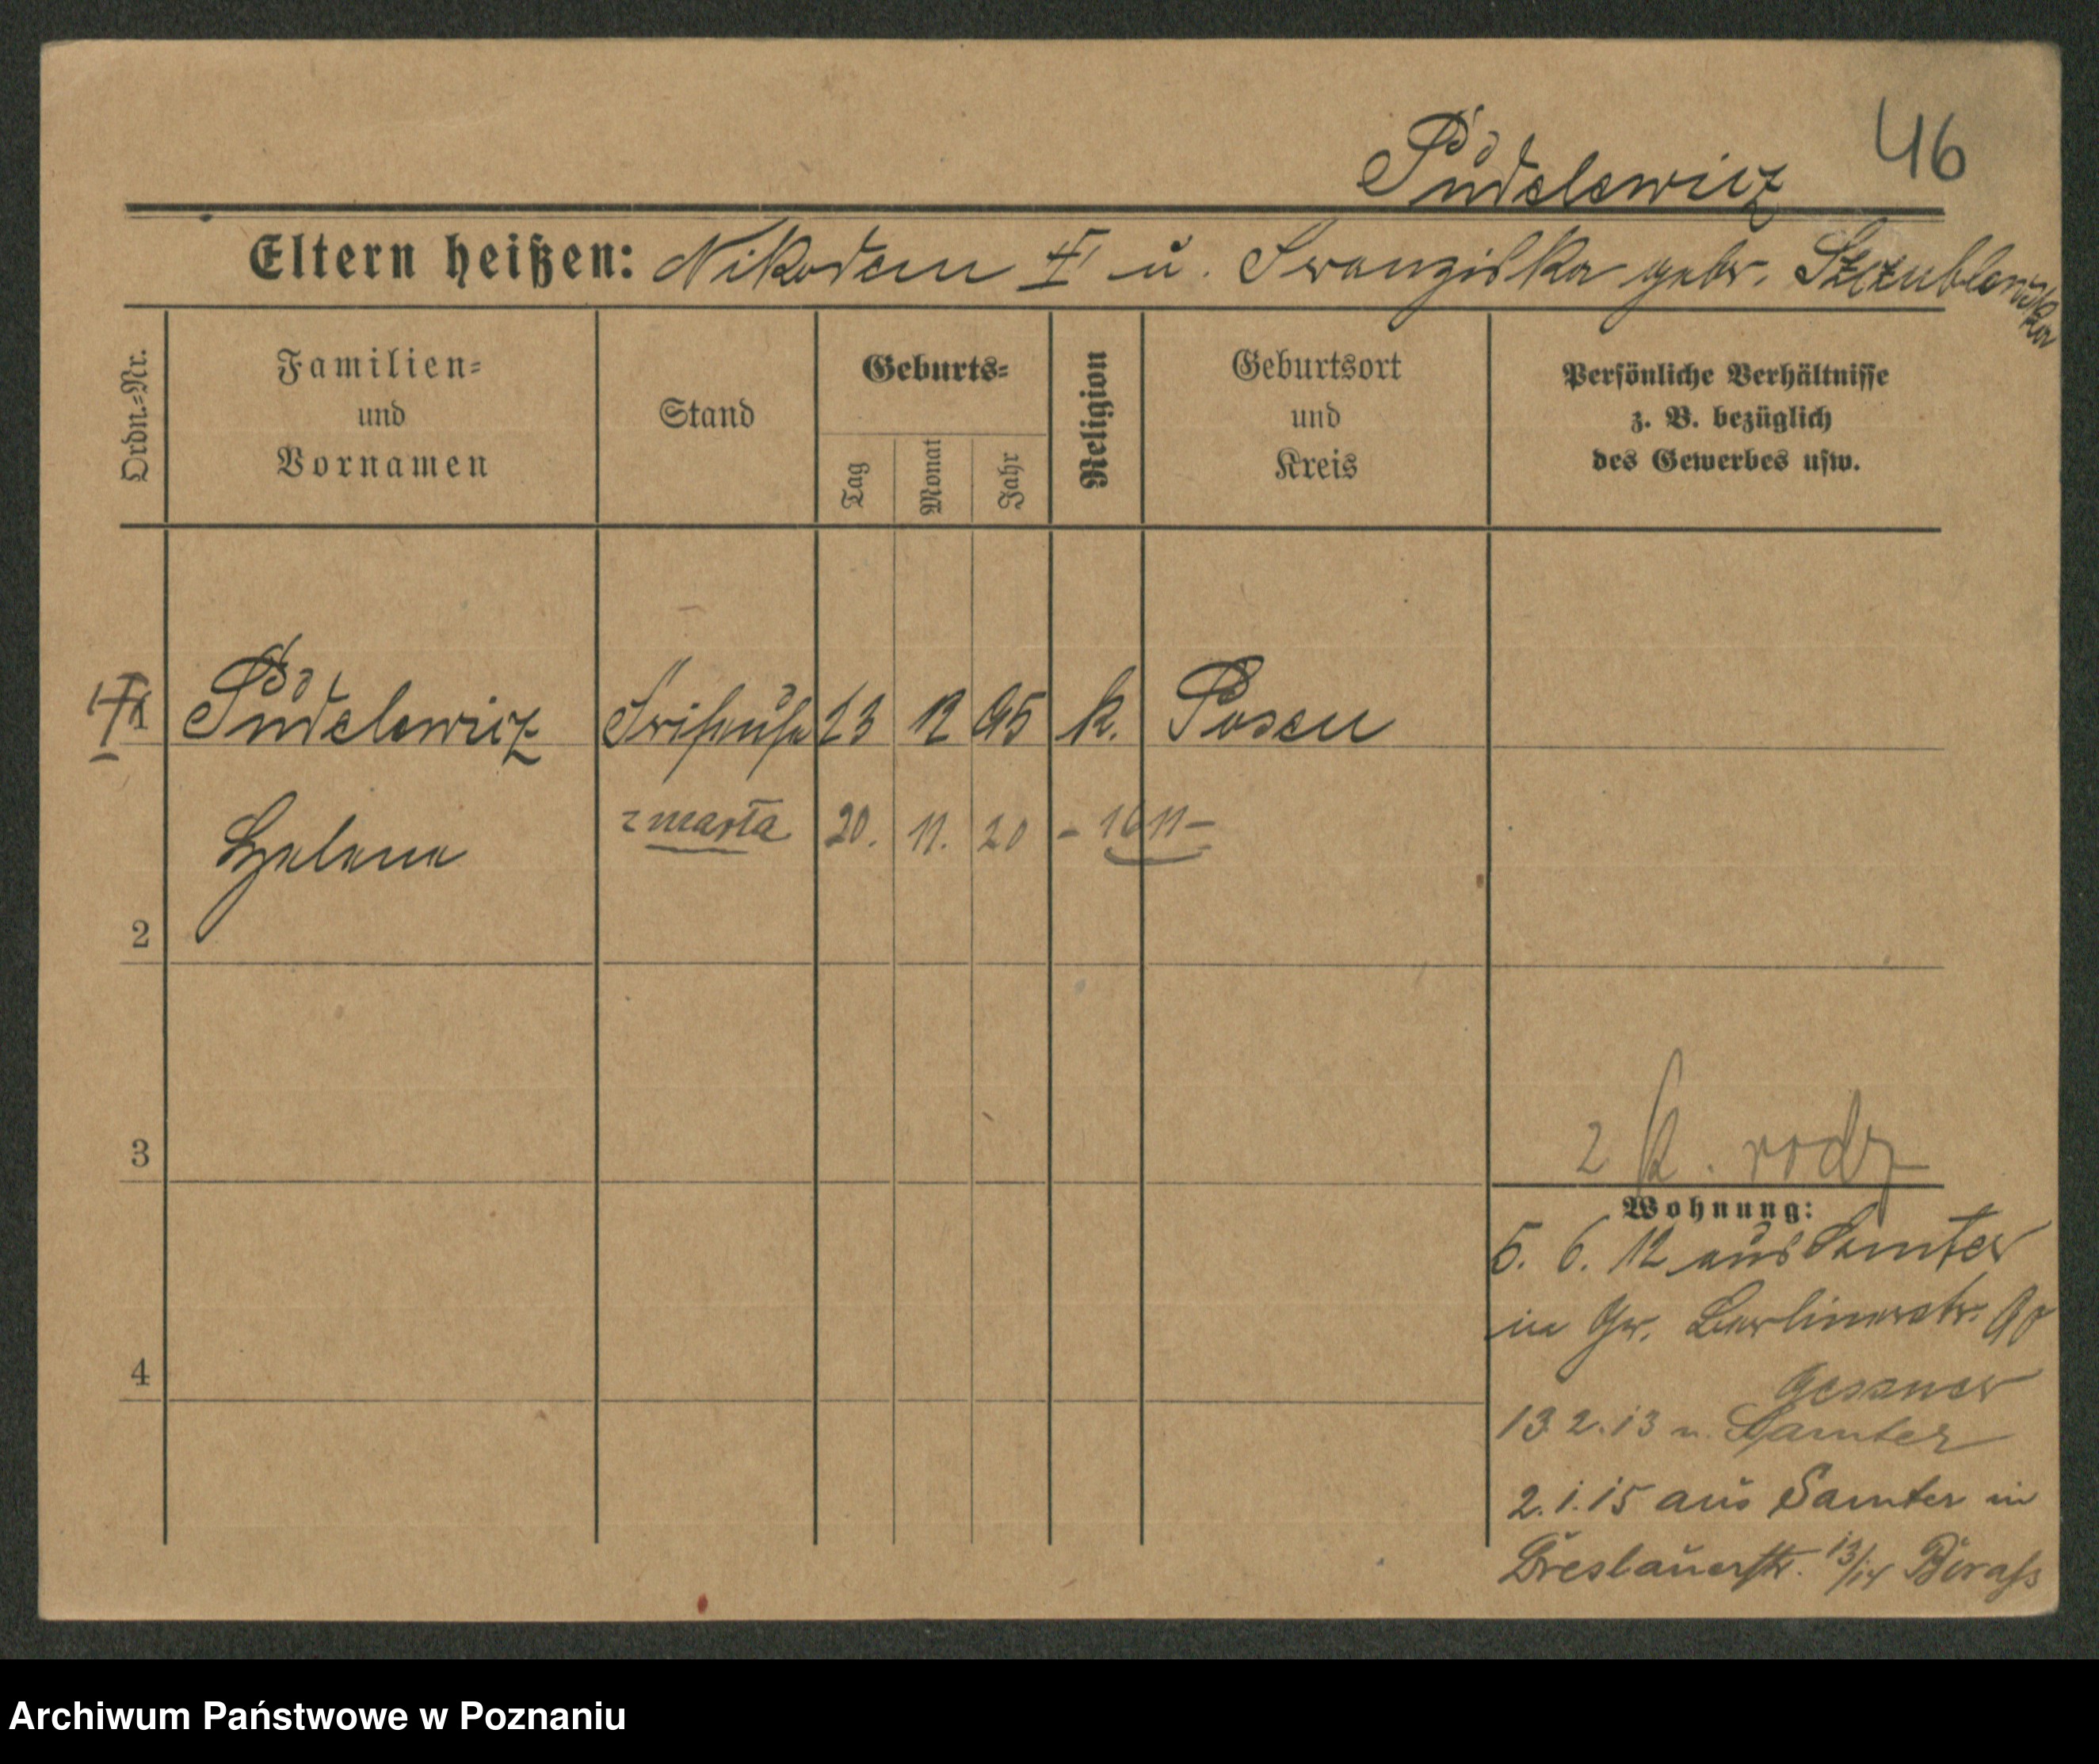 46
Pudelewicz
Eltern heißen: Nikodem † u. Franziska gebr. Szczublewska
Ordn.-Nr.
Familien-
und
Vornamen
Stand
Geburts-
Tag
Monat
Jahr
Religion
Geburtsort
und
Kreis
Persönliche Verhältnisse
z. B. bezüglich
des Gewerbes usw.
1 Pudelewicz 23 12 95 k. Posen
Helene
zmarła 20. 11. 20 - 1611 -
2
3
4
2 k. rodz
Wohnung:
5. 6. 12 aus Samter
in Gr. Berlinerstr. 90
Gessner
13 2. 13 n. Samter
2. 1. 15 aus Samter in
Breslauerstr. 13/14
Archiwum Państwowe w Poznaniu